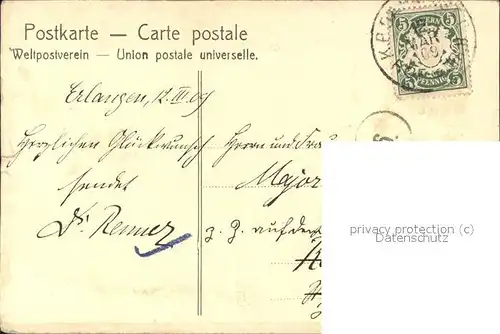 Postkarte — Carte postale
Weltpostverein — Union postale universelle.
5 BAYERN 5
5 PFENNIG 5
Erlangen, 12. III 09
Herzlichen Glückwunsch
sendet
Dr.
Herrn und Frau
Major
z. Z. auf dem
privacy protection (c)
Datenschutz